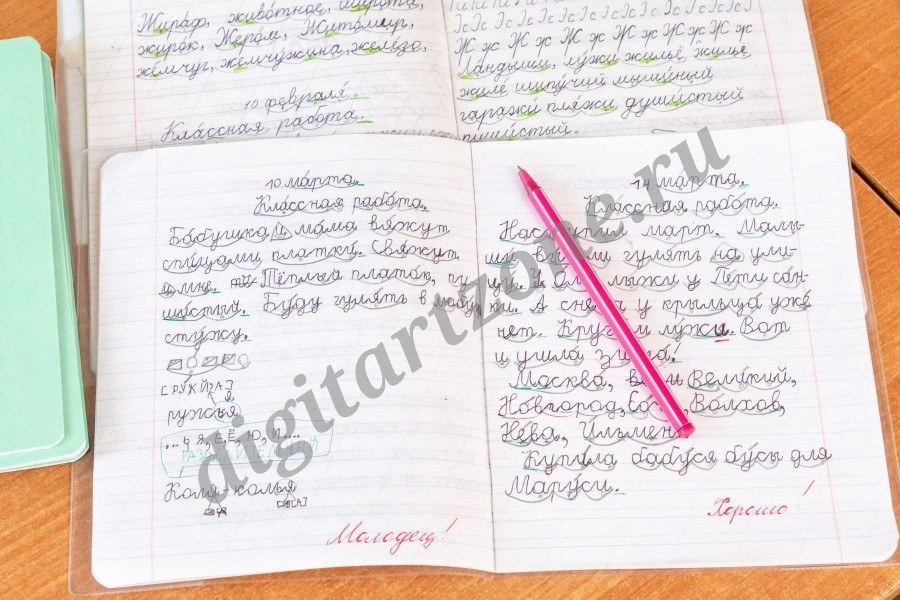 Жираф, животное,
жирок, Жером, Житомир,
жемчуг, жемчужина, железо,
10 февраля.
Классная работа.
Ж ж Ж ж Ж ж Ж ж Ж ж Ж ж
Ландыши, лужи жильё жилье
жиле шипучий мышиный
гаражи пляжи душистый
пушистый.
10 марта.
Классная работа.
Бабушка и мама вяжут
спицами платки. Свяжут
и мне. Тёплый платок,
шистый. Буду гулять в
стужу.
[РУЖЙА]
я
ружья
... ь я, е, ё, ю, и...
Коля - колья
Молодец!
14 марта.
Классная работа.
март. Малы-
ши гулять на ули-
лыжи у Пети сан-
ки. А у крыльца уже
нет. лужи. Вот
и ушла зима.
Москва, Великий,
Новгород, Волхов,
Нева, Ильмень
Купила бабуся бусы для
Маруси.
Хорошо!
digitartzone.ru